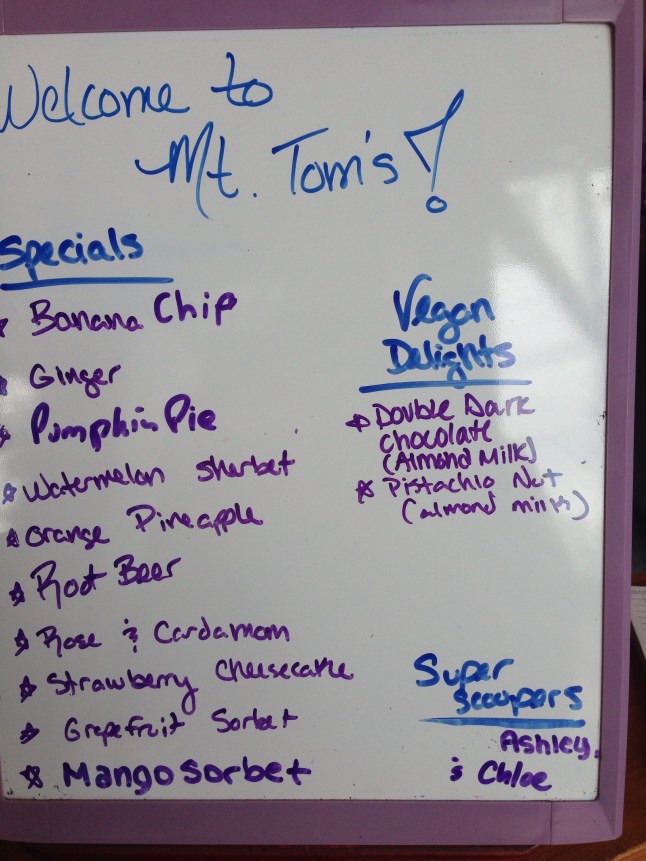 Welcome to
Mt. Tom's!
Specials
Banana Chip
Ginger
Pumpkin Pie
Watermelon Sherbet
Orange Pineapple
Root Beer
Rose & Cardamom
Strawberry Cheesecake
Grapefruit Sorbet
Mango Sorbet
Vegan
Delights
Double Dark
Chocolate
(Almond Milk)
Pistachio Nut
(almond milk)
Super
Scoopers
Ashley
& Chloe